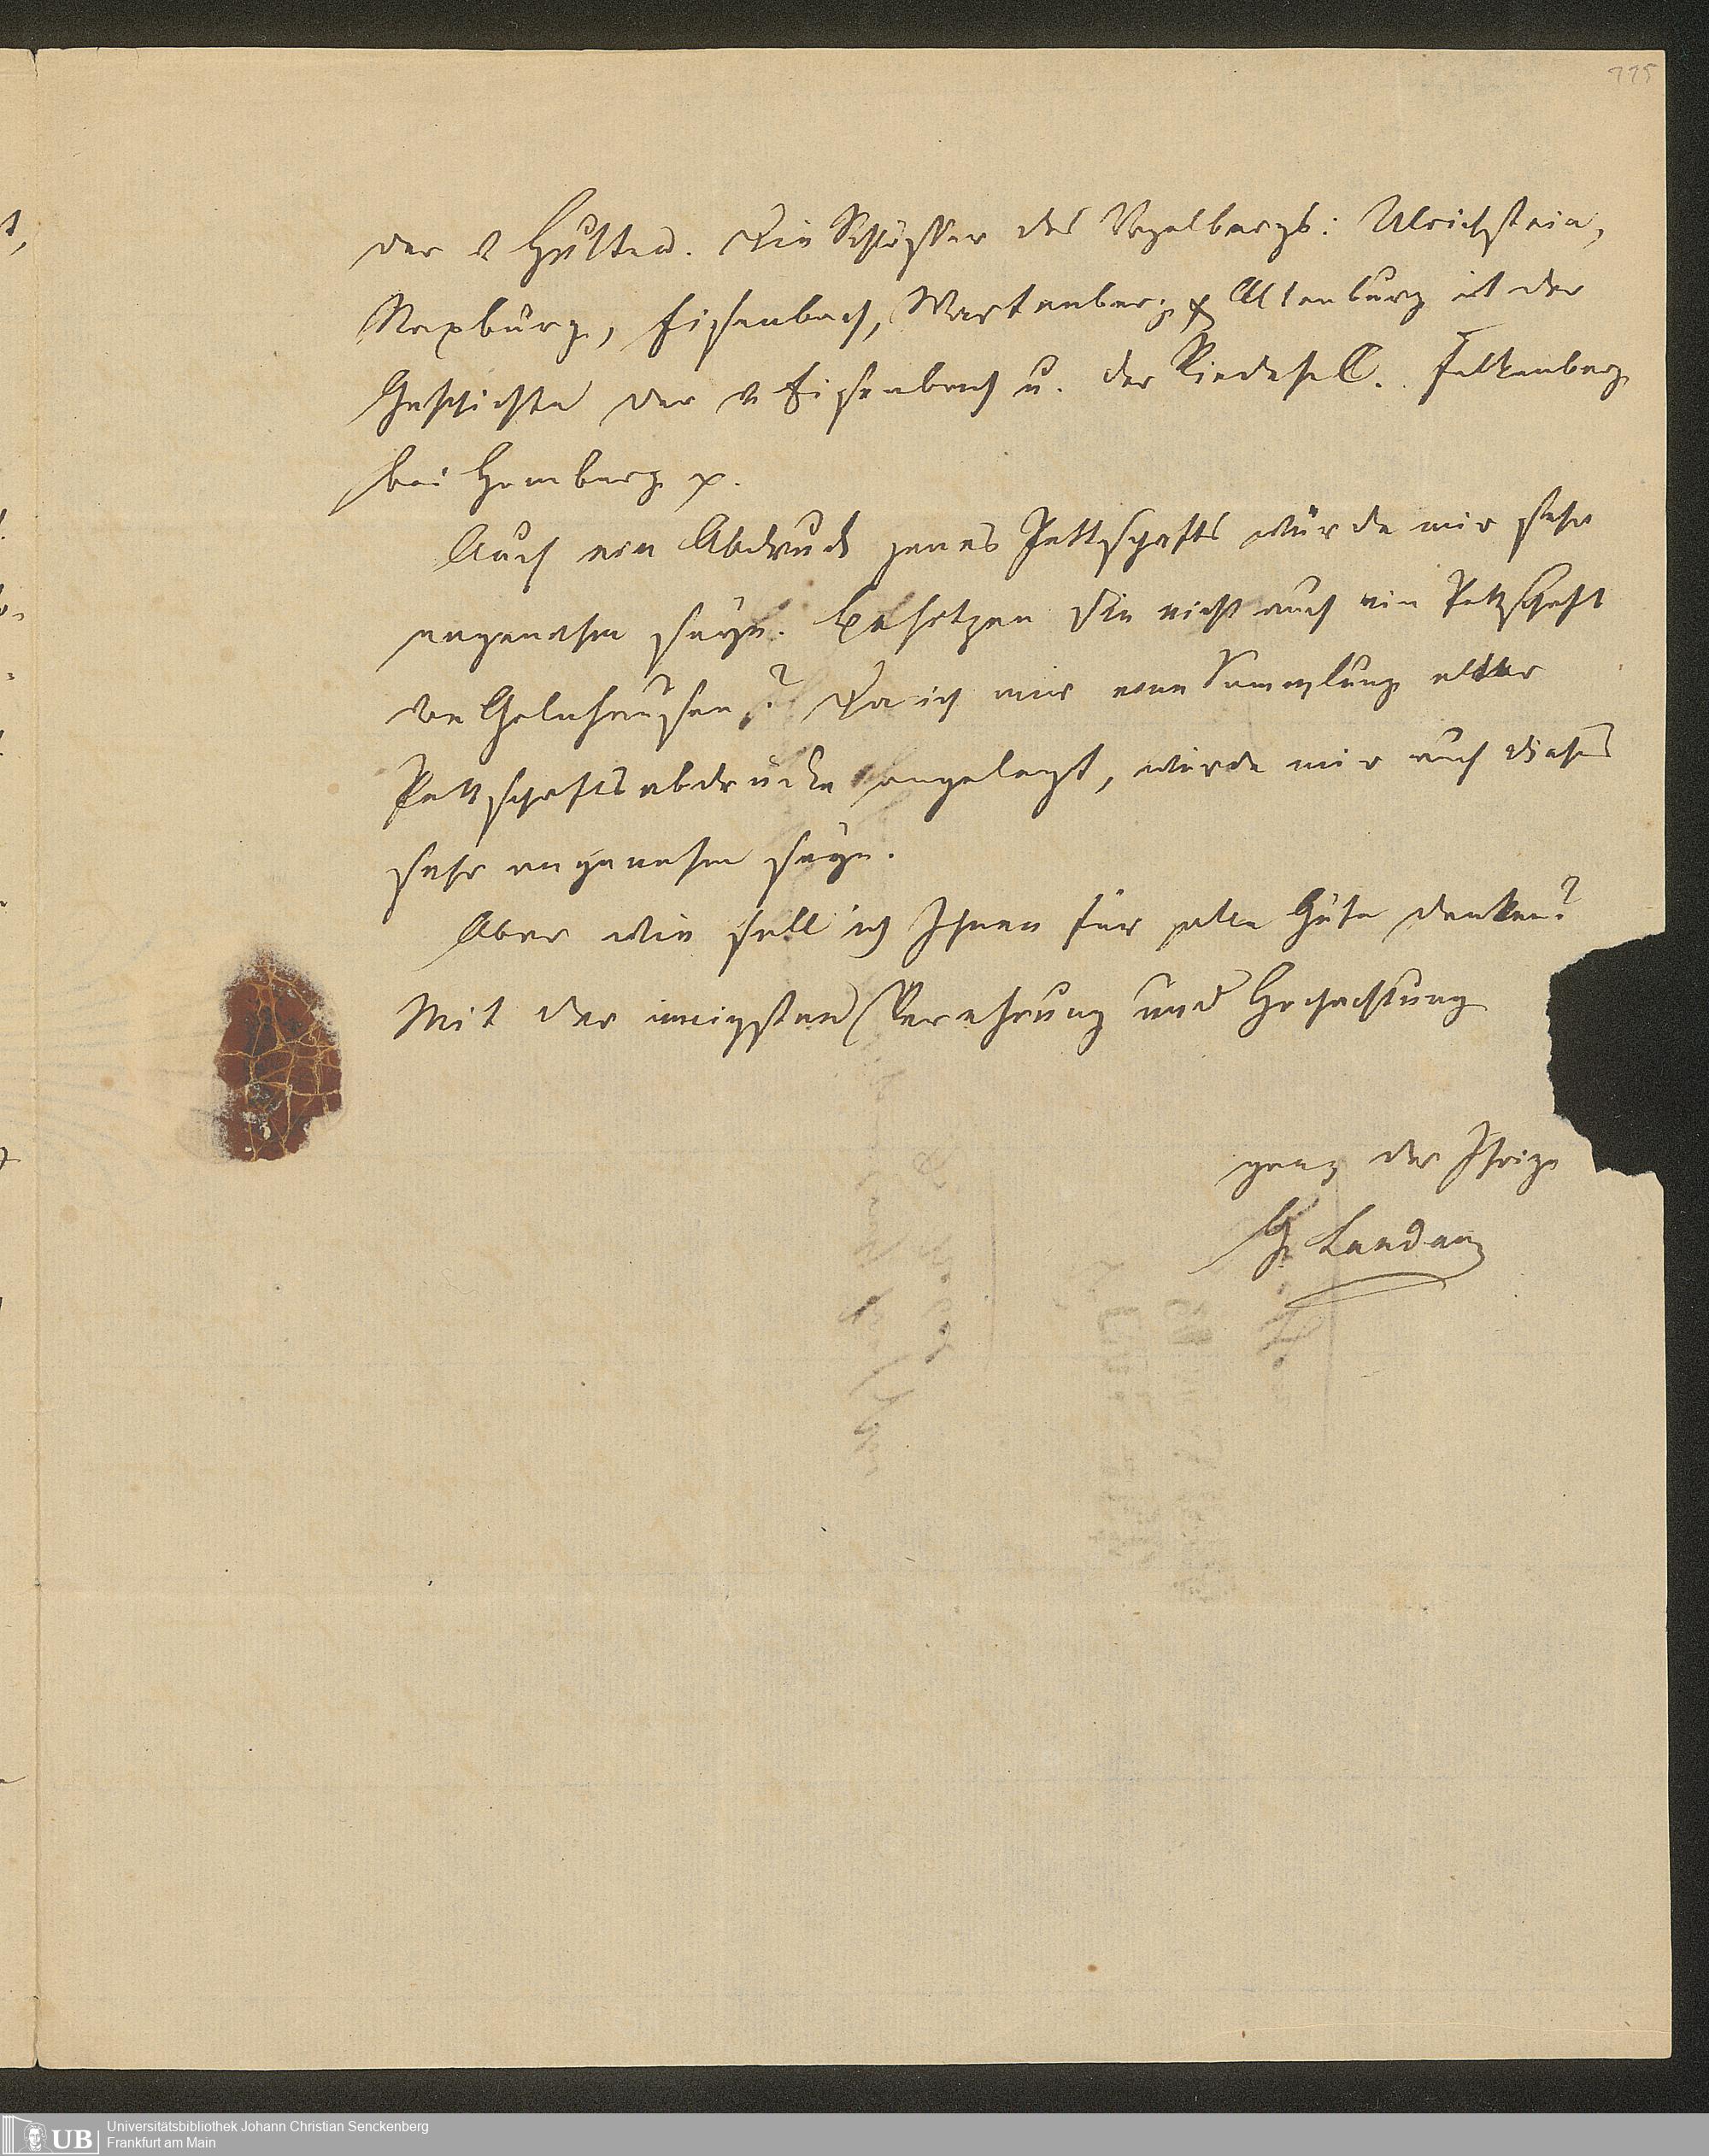 115
der v Hutten. Die Schlösser des Vogelbergs: Ulrichstein,
Moxburg, Eisenbach, Wartenberg, Altenburg mit der
Geschichte der v Eisenbach u. der Riedesell. Falkenberg
bei Homberg p.
Auch ein Abdruck jenes Pettschafts würde mir sehr
angenehm seyn. Besitzen Sie nicht auch ein Pettschaft
von Gelnhausen? Da ich mir eine Sammlung alter
Pettschaftsabdrücke angelegt, würde mir auch dieses
sehr angenehm seyn.
Aber wie soll ich Ihnen für alle Güte danken?
Mit der innigsten Verehrung und Hochachtung
ganz der Ihrige
G Landau
UB
Universitätsbibliothek Johann Christian Senckenberg
Frankfurt am Main